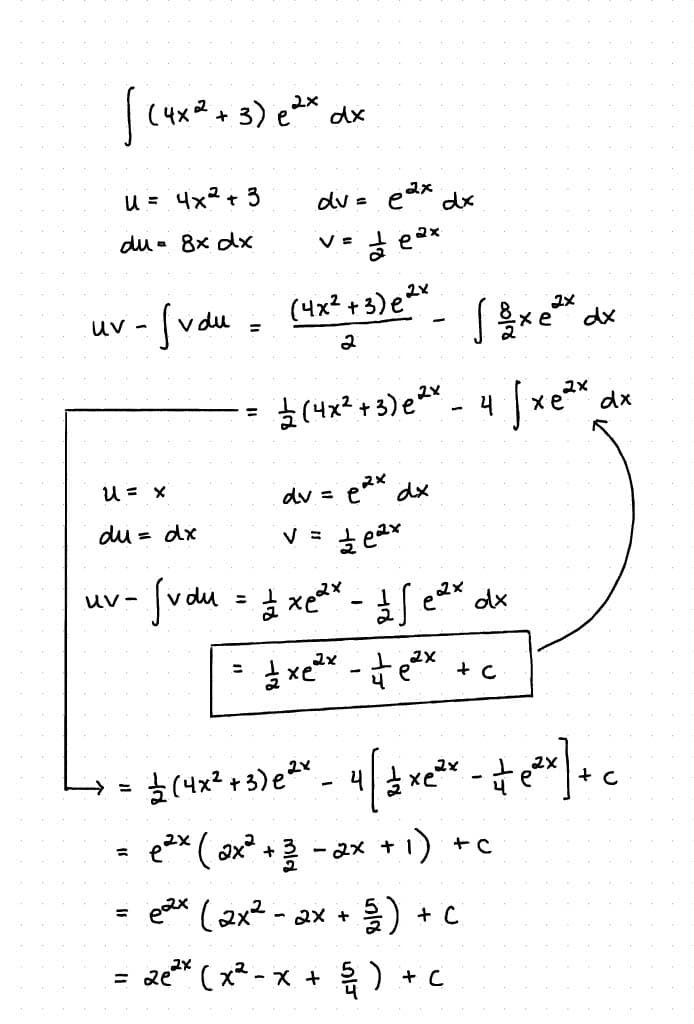 ∫ (4x² + 3) e²ˣ dx
u = 4x² + 3 dv = e²ˣ dx
du = 8x dx v = 1/2 e²ˣ
uv - ∫ v du = (4x² + 3) e²ˣ / 2 - ∫ 8/2 x e²ˣ dx
= 1/2 (4x² + 3) e²ˣ - 4 ∫ x e²ˣ dx
u = x dv = e²ˣ dx
du = dx v = 1/2 e²ˣ
uv - ∫ v du = 1/2 x e²ˣ - 1/2 ∫ e²ˣ dx
= 1/2 x e²ˣ - 1/4 e²ˣ + c
= 1/2 (4x² + 3) e²ˣ - 4 [1/2 x e²ˣ - 1/4 e²ˣ] + c
= e²ˣ (2x² + 3/2 - 2x + 1) + c
= e²ˣ (2x² - 2x + 5/2) + c
= 2e²ˣ (x² - x + 5/4) + c